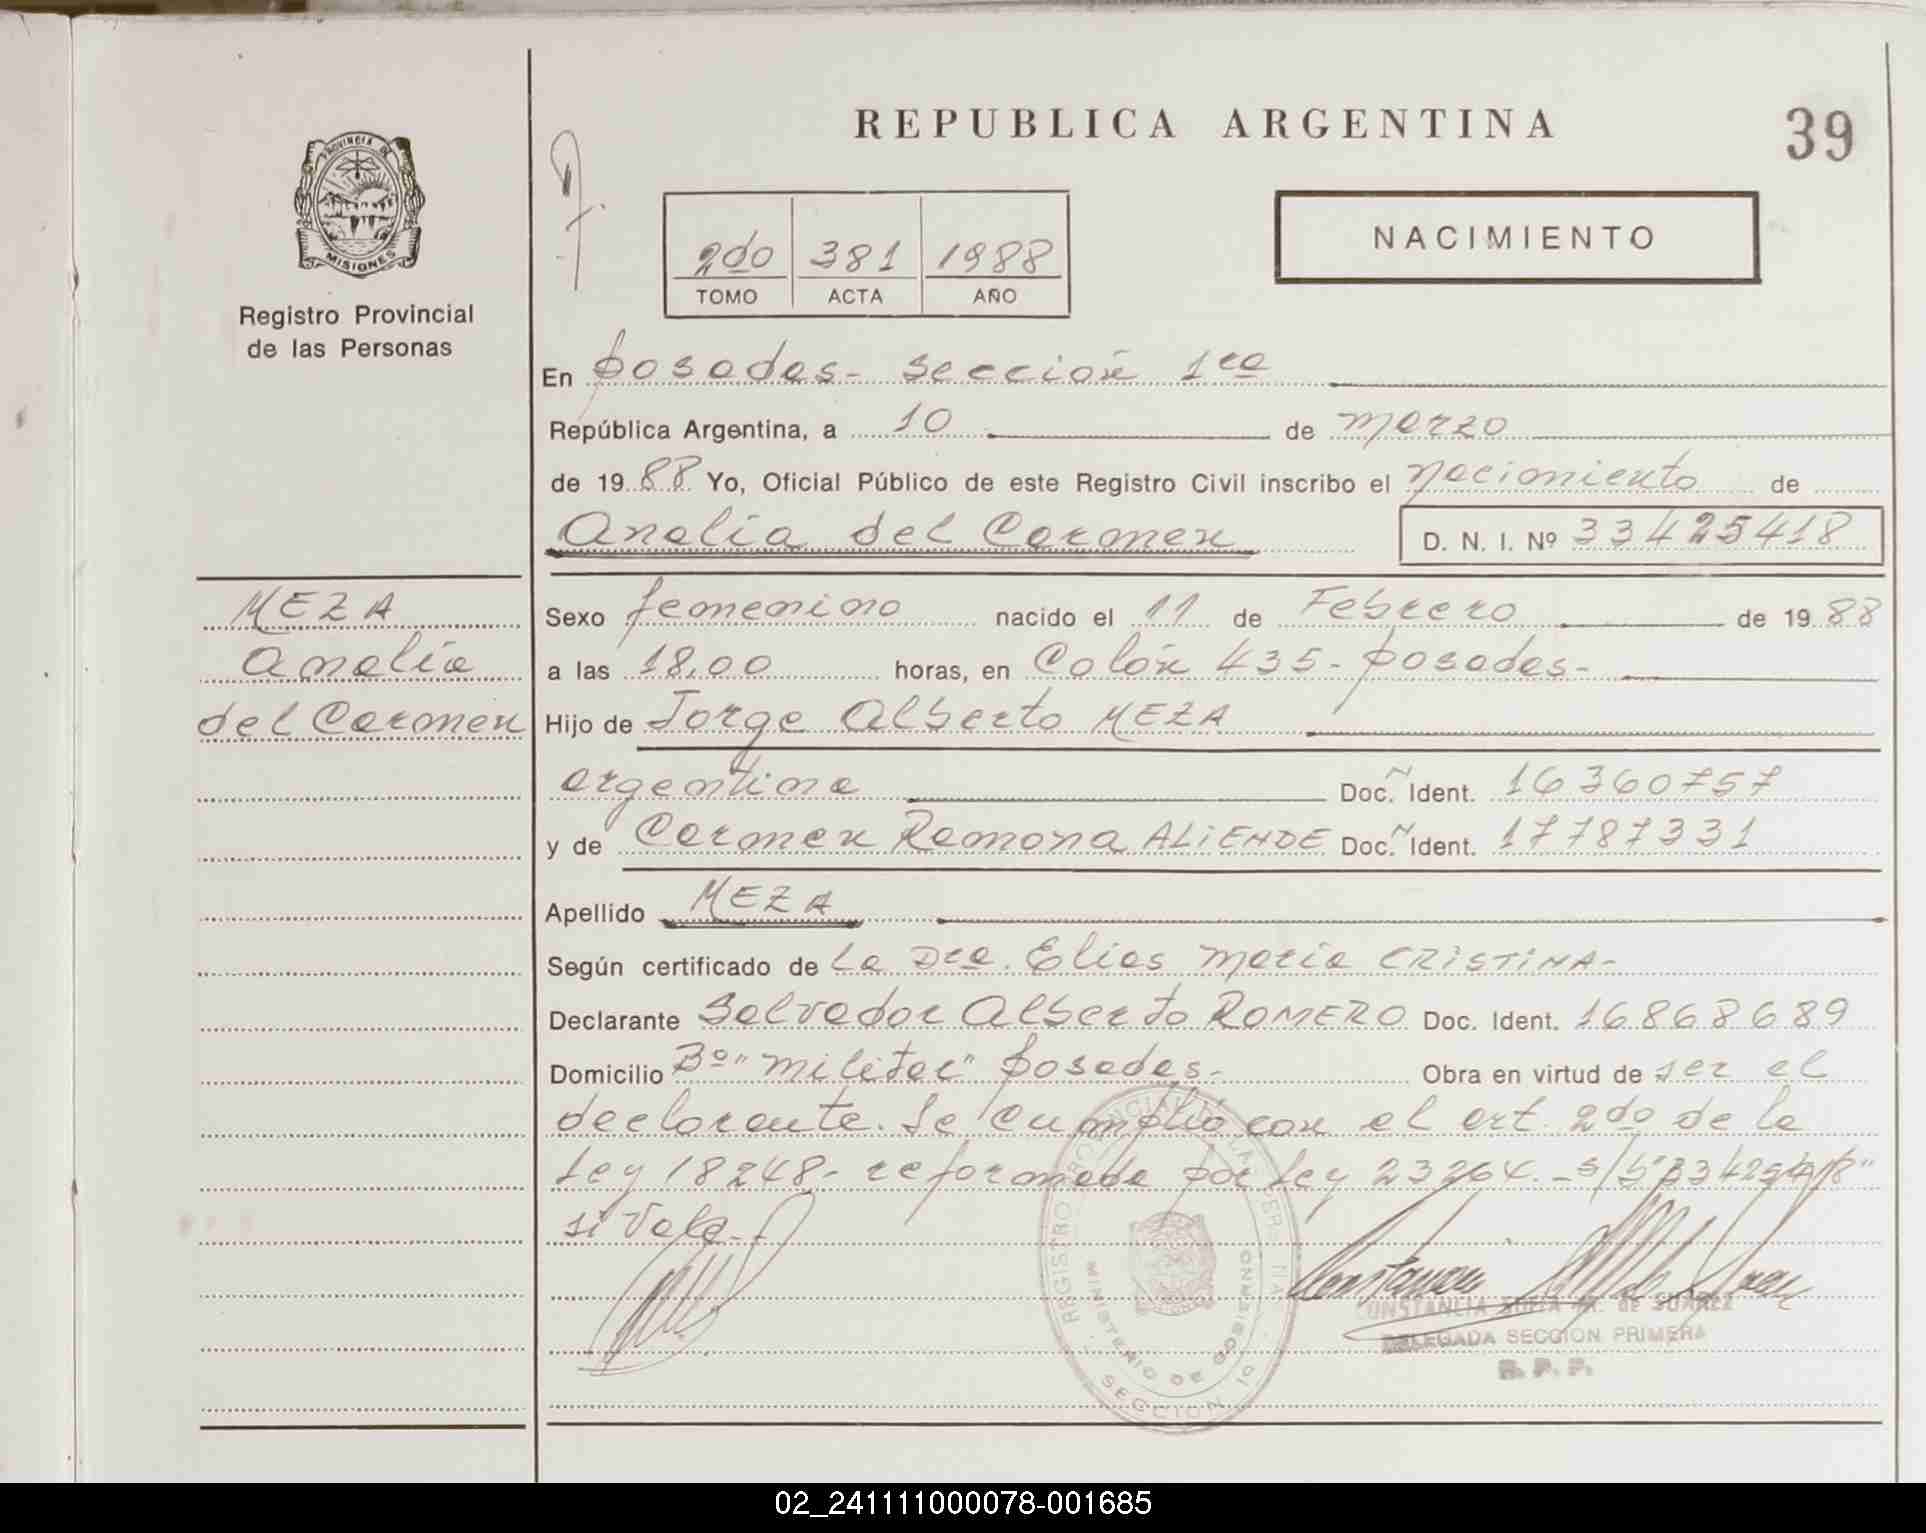 REPUBLICA ARGENTINA
39
PROVINCIA DE
MISIONES
Registro Provincial
de las Personas
2do 381 1988
TOMO ACTA AÑO
NACIMIENTO
En Posadas- Sección 1ra
República Argentina, a 10 de marzo
de 1988 Yo, Oficial Público de este Registro Civil inscribo el nacimiento de
Analía del Carmen D. N. I. Nº 33425418
MEZA
Analía
del Carmen
Sexo femenino nacido el 11 de Febrero de 1988
a las 18,00 horas, en Colón 435- Posadas-
Hijo de Jorge Alberto MEZA
argentina Doc. Ident. 16360757
y de Carmen Ramona ALIENDE Doc. Ident. 17787331
Apellido MEZA
Según certificado de La Dra. Elias Maria CRISTINA-
Declarante Salvador Alberto ROMERO Doc. Ident. 16868689
Domicilio Bº "Militar" Posadas- Obra en virtud de ser el
declarante. Se cumplió con el art. 2do de la
Ley 18248- reformada por Ley 23264.- s/b "33425418"
si vale.-
REGISTRO PROVINCIAL DE LAS PERSONAS
MINISTERIO DE GOBIERNO
SECCION 1º
CONSTANCIA SOFIA de SUAREZ
DELEGADA SECCION PRIMERA
R. P. P.
02_241111000078-001685